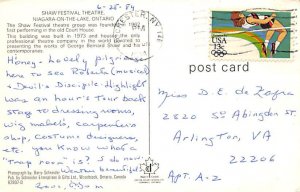 6-25-84
SHAW FESTIVAL THEATRE,
NIAGARA-ON-THE-LAKE, ONTARIO
The Shaw Festival theatre group was founded
first performing in the old Court House.
This building was built in 1973 and houses the only
professional theatre company in the world devoted to
presenting the works of George Bernard Shaw and his
contemporaries.
Honey - Lovely pilgrimage
here to see Roberta (musical)
& Devil's Disciple. Highlight
was an hour's Tour back
stage to dressing rooms,
wig makers, carpenters
shop, costume designers,
etc. you know what a
"trap room" is? I do now
Weather beautiful
Love, Mom
Photography by Barry
Pub. by Schenley Enterprises & Gifts Ltd., Ontario, Canada
USA
13c
post card
Miss D. E. de Zafra
2820 So Abingdon St
Arlington, VA
22206
Apt. A-2